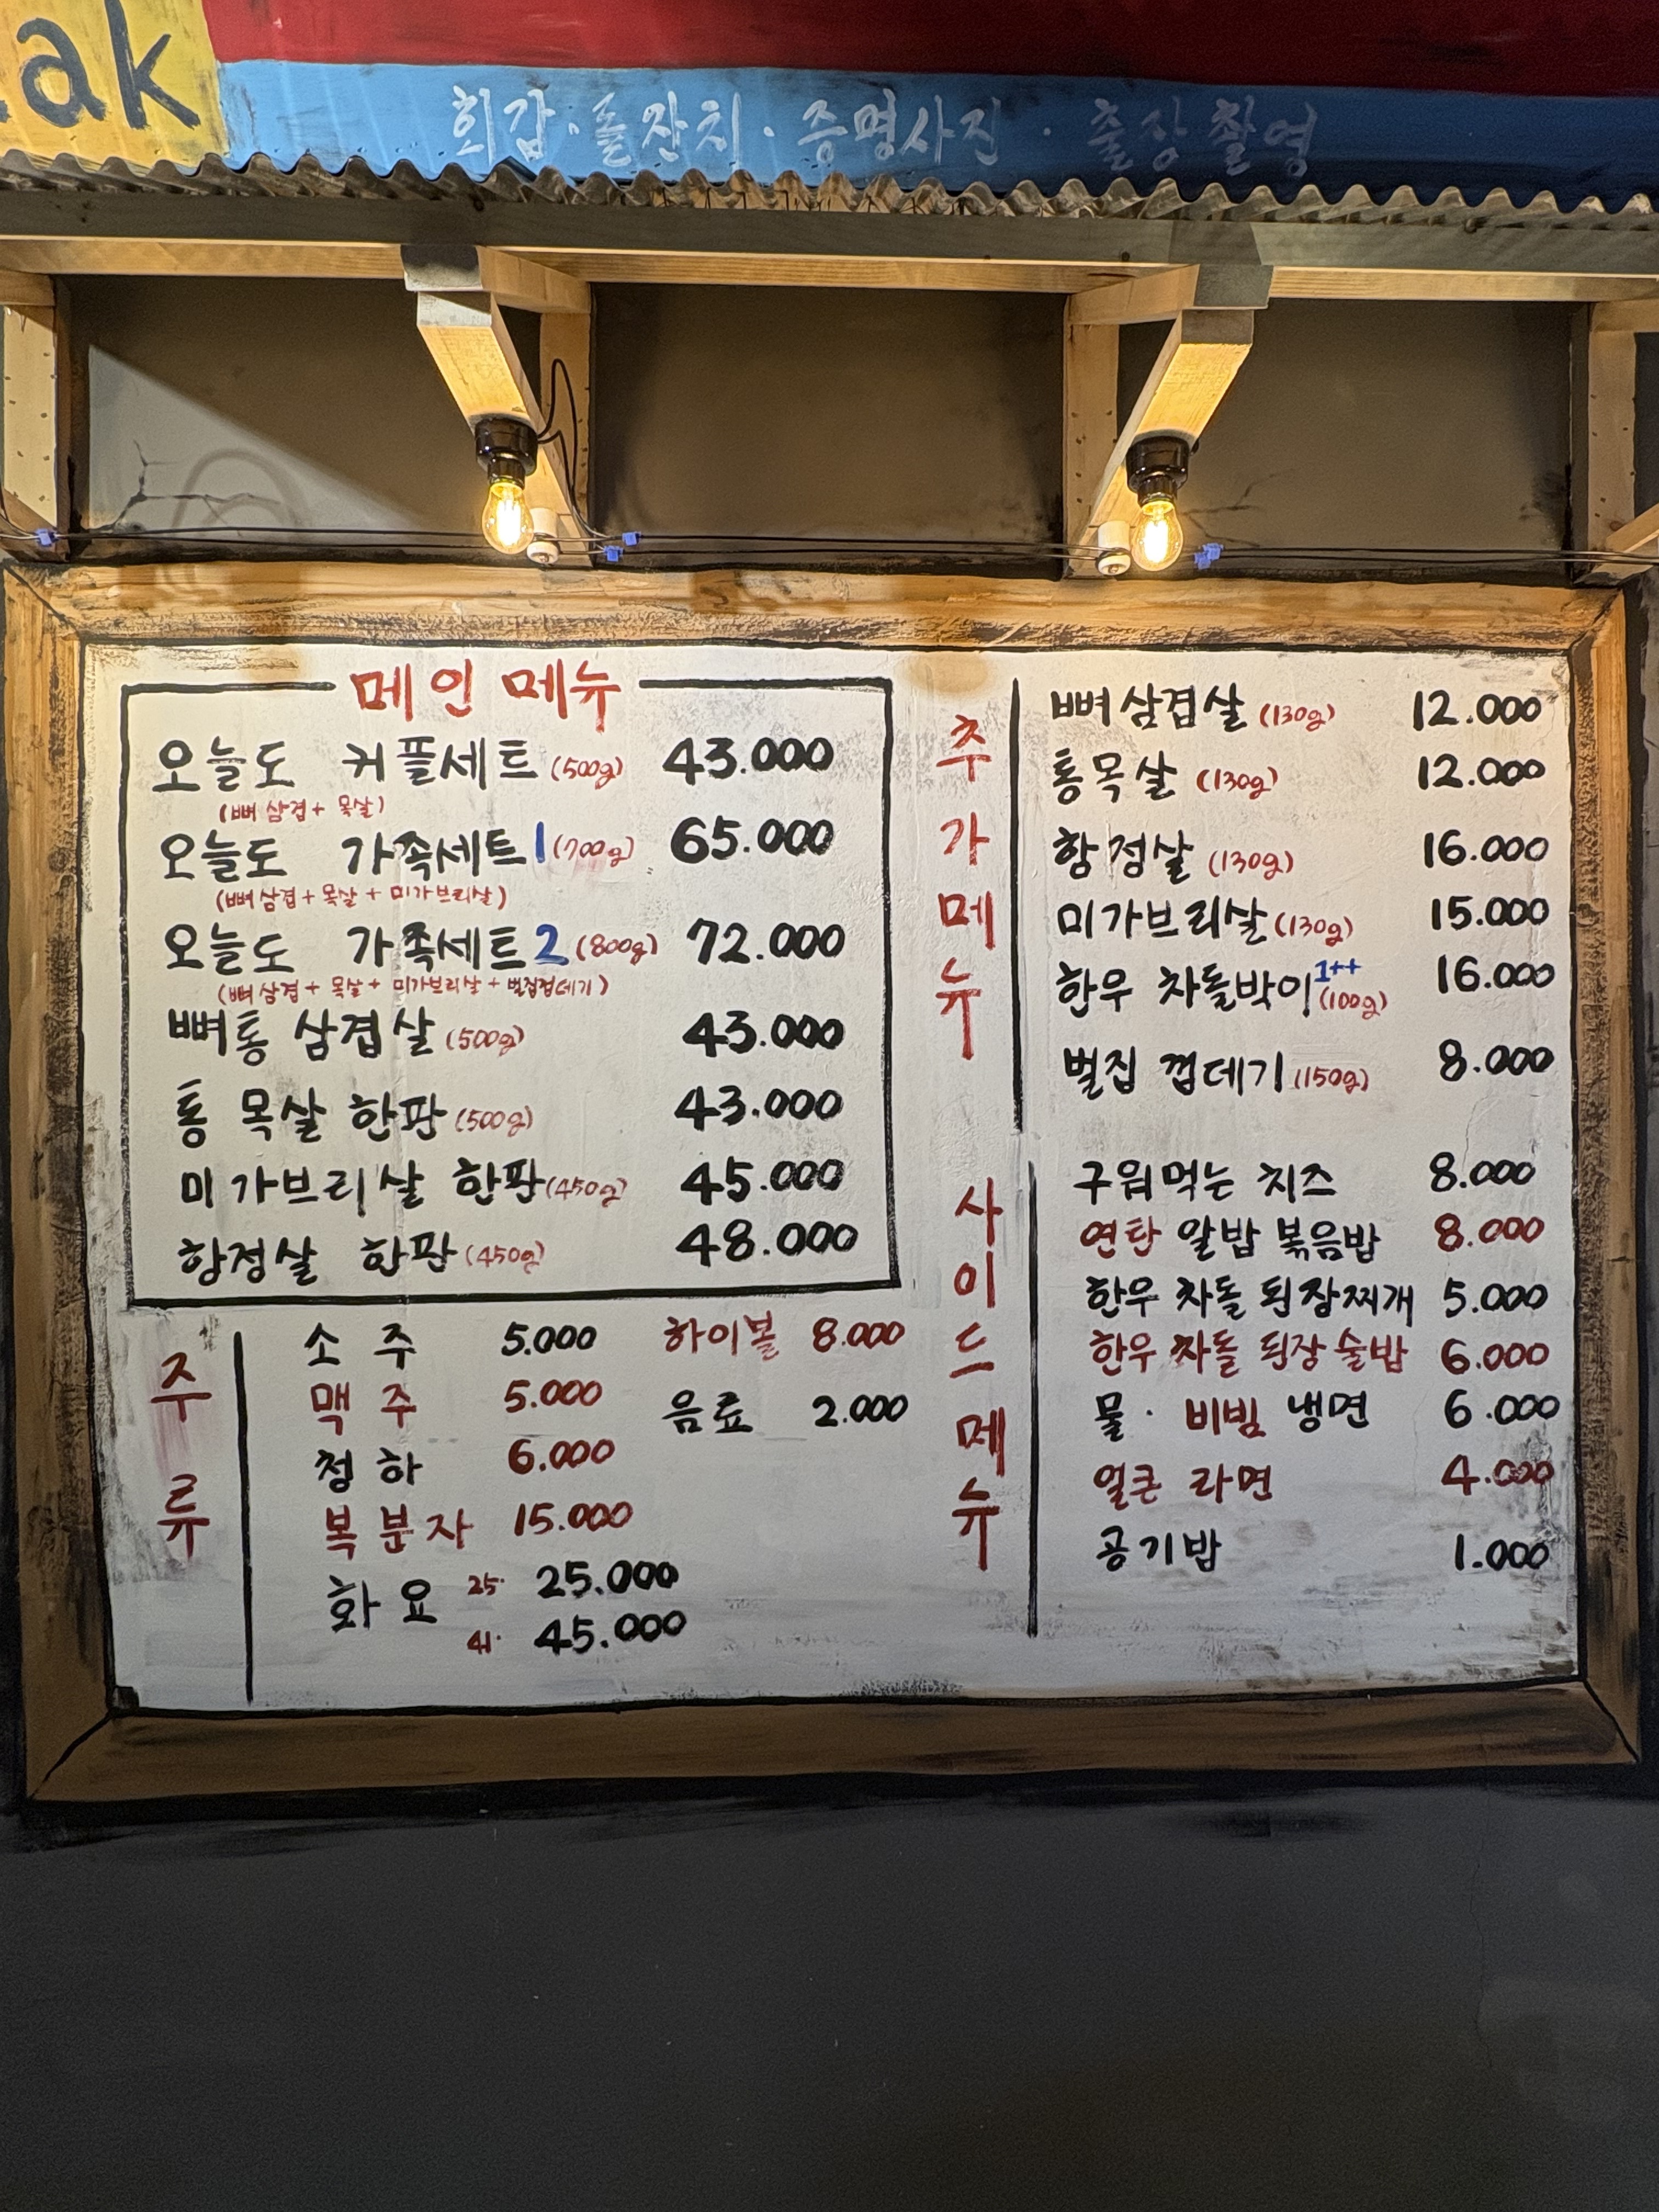 ak
회갑·돌잔치·증명사진 · 출장촬영
메인 메뉴
오늘도 커플세트 (500g) 43.000
(뼈삼겹+ 목살)
오늘도 가족세트 1 (700g) 65.000
(뼈삼겹+목살+미가브리살)
오늘도 가족세트 2 (800g) 72.000
(뼈삼겹+ 목살+ 미가브리살+벌집껍데기)
뼈통 삼겹살 (500g) 43.000
통 목살 한판 (500g) 43.000
미가브리살 한판 (450g) 45.000
항정살 한판 (450g) 48.000
주류
소주 5.000
맥주 5.000
청하 6.000
복분자 15.000
화요 25· 25.000
41· 45.000
하이볼 8.000
음료 2.000
추가메뉴
뼈삼겹살 (130g) 12.000
통목살 (130g) 12.000
항정살 (130g) 16.000
미가브리살 (130g) 15.000
한우 차돌박이 1++ (100g) 16.000
벌집 껍데기 (150g) 8.000
사이드메뉴
구워먹는 치즈 8.000
연탄 알밥 볶음밥 8.000
한우 차돌 된장찌개 5.000
한우 차돌 된장술밥 6.000
물 · 비빔 냉면 6.000
얼큰 라면 4.000
공기밥 1.000